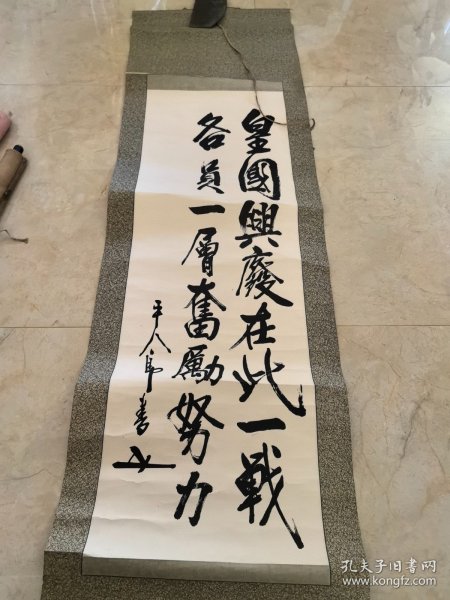 皇國興廢在此一戰
各員一層奮勵努力
平八郎書
孔夫子旧书网
www.kongfz.com